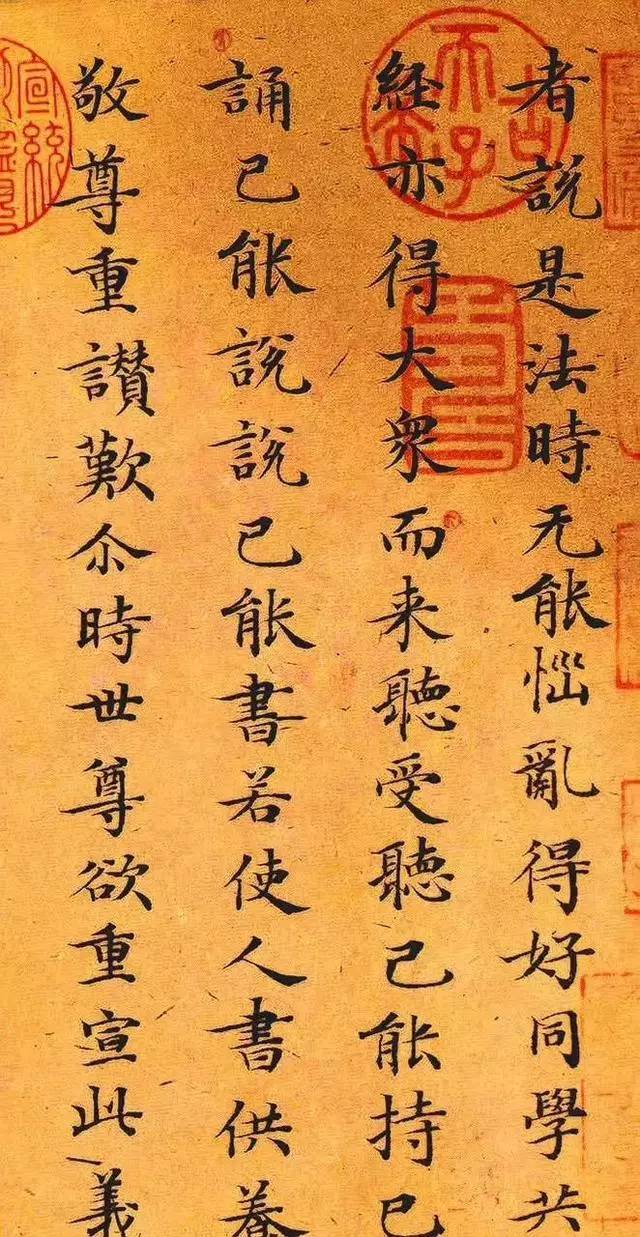 者說是法時无能惱亂得好同學共
経亦得大衆而来聽受聽已能持已
誦已能說說已能書若使人書供養
敬尊重讃歎尒時世尊欲重宣此義
古希天子
宣統